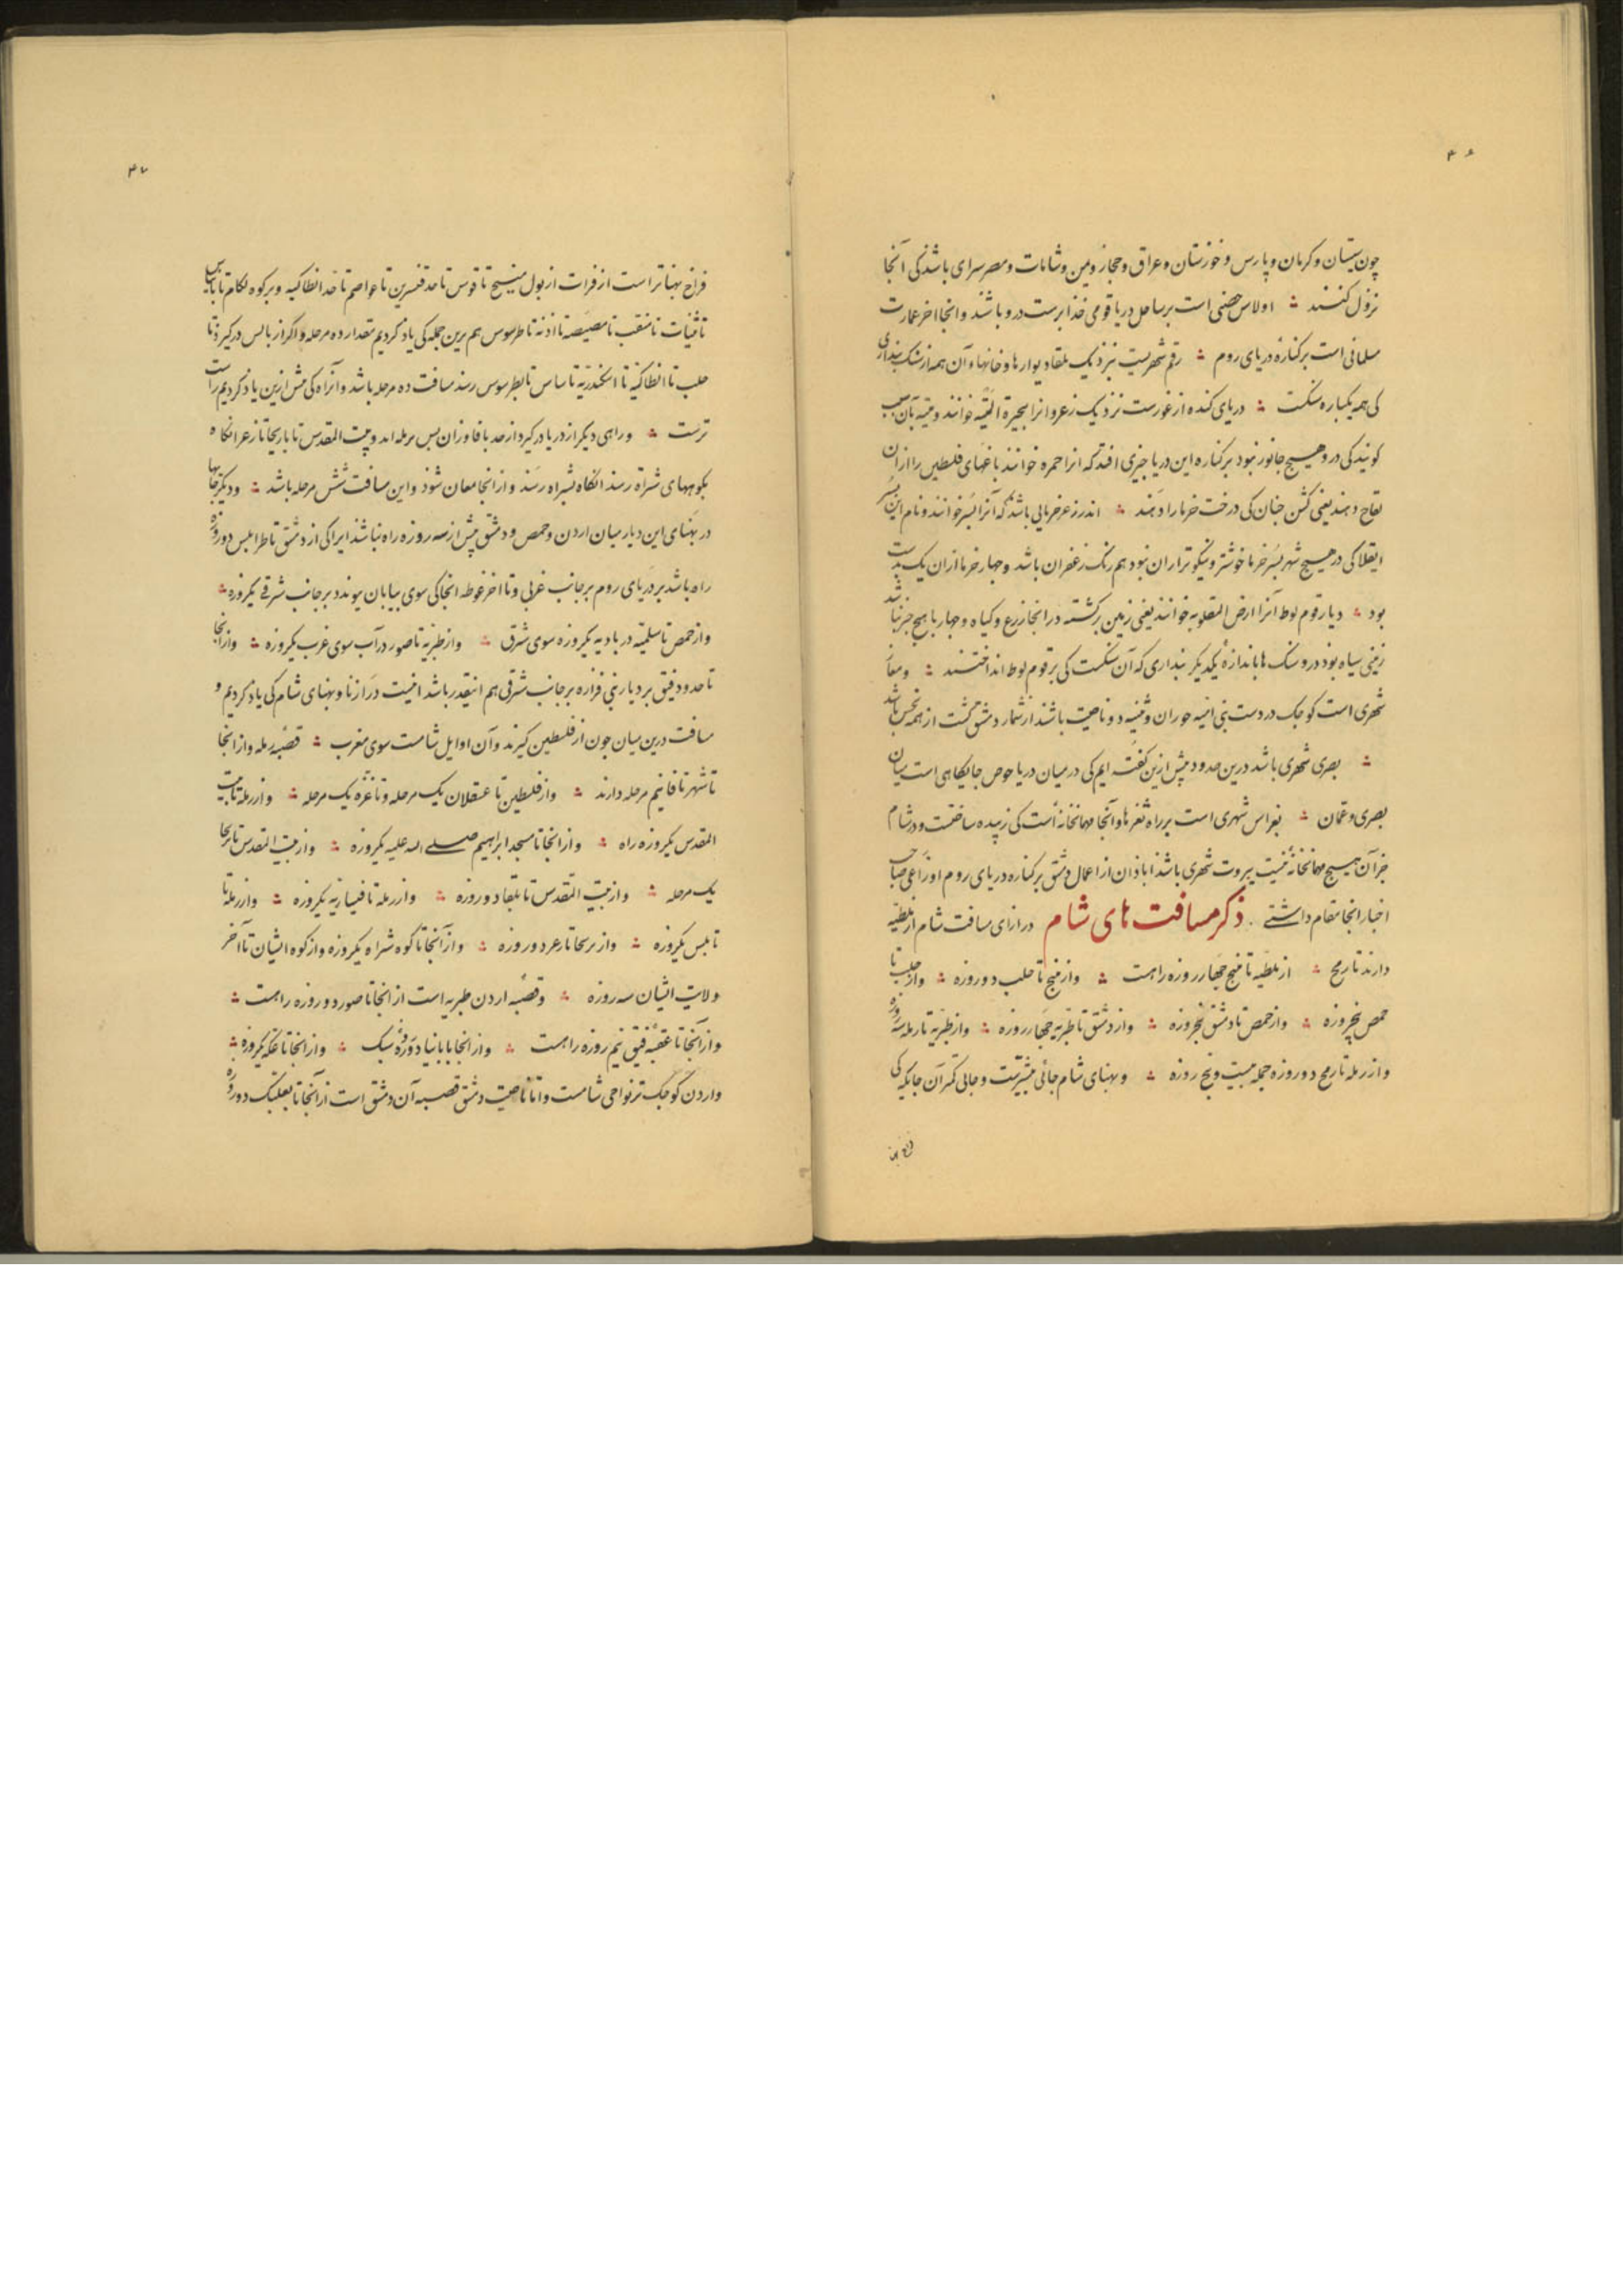 ۴۶
چون سیستان و کرمان و پارس و خوزستان و عراق و حجاز و یمن و شامات و مصر سرای باشد کی آنجا
نزول کنند ؞ اولاس حصنی است بر ساحل دریا قومی خذا پرست درو باشند و انجا اخر عمارت
مسلمانی است بر کنارهٔ دریای روم ؞ رقم شهریست بنزدیک بلقا دیوارها و خانهاء آن همه از سنگ پنداری
کی همه یکپاره سنگست ؞ دریای کنده از غورست نزدیک زعر و انرا بحیرة المیته خوانند و میته بآن سبب
کویند کی درو هیسچ جانور نبود بر کناره این دریا چیزی افتد که انرا حمره خوانند باغهای فلسطین را ازان
لقاح دهند یعنی کشن چنان کی درخت خرما را دهند ؞ اندر زعر خرمایی باشد که آنرا بسر خوانند و نام این بسر
ایقلا کی در هیسچ شهر بسر خرما خوشتر و نیکوتر از ان نبود هم رنک زعفران باشد و چهار خرما از ان یک بدست
بود ؞ دیار قوم لوط آنرا ارض المقلوبه خوانند یعنی زمین برکشته در انجا زرع و کیاه و چهارپا هیچ چیز نباشد
زمینی سیاه بوذ درو سنک ها باندازهٔ یکدیکر پنداری که آن سنکست کی بر قوم لوط انداختند ؞ و معان
شهری است کوچک در دست بنی امیه حوران و بثنیه دو ناحیت باشند از شمار دمشق کشت از همه بخس باشد
؞ بصری شهری باشد درین حدود پیش ازین کفته ایم کی در میان دریا حوض جایکاهی است میان
بصری و عمان ؞ بغراس شهری است بر راه ثغرها و آنجا مهمانخانهٔ است کی زبیده ساختست و در شام
جز آن هیسچ مهمانخانه نیست بیروت شهری باشذ اباذان از اعمال دمشق بر کناره دریای روم اوزاعی صاحب
اخبار انجا مقام داشتی . ذکر مسافت های شام درازای مسافت شام از ملطیه
دارند تا رمح ؞ از ملطیه تا منبج جهار روزه راهست ؞ و از منبج تا حلب دو روزه ؞ و از حلب تا
حمص پنجروزه ؞ و از حمص تا دمشق پنجروزه ؞ و از دمشق تا طبریه جهار روزه ؞ و از طبریه تا رمله سه روزه
و از رمله تا رمح دو روزه جمله بیست و پنج روزه ؞ و پهنای شام جائی بیشترست و جایی کمتر آن جایکه کی
فراخ پهنا
۴۷
فراخ پهناتر است از فرات از پول منبیج تا قوس تا حد قنسرین تا عواصم تا حد انطاکیه و بر کوه لکام تا بایاس
تا ثنیات تا منقب تا مصیصه تا اذنه تا طرسوس هم برین جمله کی یاذ کردیم مقدار ده مرحله و اکر از بالس درکیرذ تا
حلب تا انطاکیه تا اسکندریه تا بیاس تا بطرسوس رسند مسافت ده مرحله باشد و آنراه کی پیش ازین یاذ کردیم راست
ترست ؞ و راهی دیکر از دریا درکیرد از حد یافا و زان پس برمله اید و بیت المقدس تا باریحا تا زعر انکاه
بکوههای شراة رسد انکاه بشراه رسد و از انجا معان شود و این مسافت شش مرحله باشد ؞ و دیکر جایها
در پهنای این دیار میان اردن و حمص و دمشق بیش از سه روزه راه نباشد ایرا کی از دمشق تا طرابلس دو روزه
راه باشد بر دریای روم بر جانب غربی و تا اخر غوطه انجا کی سوی بیابان پیوندد بر جانب شرقی یکروزه ؞
و از حمص تا سلمیه در بادیه یکروزه سوی شرق ؞ و از طبریه تا صور در آب سوی غرب یکروزه ؞ و از انجا
تا حدود فیق بر دیار بنی فزاره بر جانب شرقی هم اینقدر باشد اینست درازنا و پهنای شام کی یاذ کردیم و
مسافت درین میان چون از فلسطین کیرند و آن اوایل شامست سوی مغرب ؞ قصبه رمله و از انجا
تا شهر تا فا نیم مرحله دارند ؞ و از فلسطین تا عسقلان یک مرحله و تا غزه یک مرحله ؞ و از رمله تا بیت
المقدس یکروزه راه ؞ و از انجا تا مسجد ابراهیم صلی الله علیه یکروزه ؞ و از بیت المقدس تا ریحا
یک مرحله ؞ و از بیت المقدس تا بلقا دو روزه ؞ و از رمله تا قیساریه یکروزه ؞ و از رمله تا
نابلس یکروزه ؞ و از ریحا تا زعر دو روزه ؞ و از آنجا تا کوه شراه یکروزه و از کوه ایشان تا آخر
ولایت ایشان سه روزه ؞ و قصبه اردن طبریه است از انجا تا صور دو روزه راهست ؞
و از آنجا تا عقبه فیق نیم روزه راهست ؞ و از انجا تا بانیاد دو روزه سبک ؞ و از انجا تا عکه یکروزه ؞
و اردن کوچک تر نواحی شامست و اما ناحیت دمشق قصبه آن دمشق است از آنجا تا بعلبک دو روزه